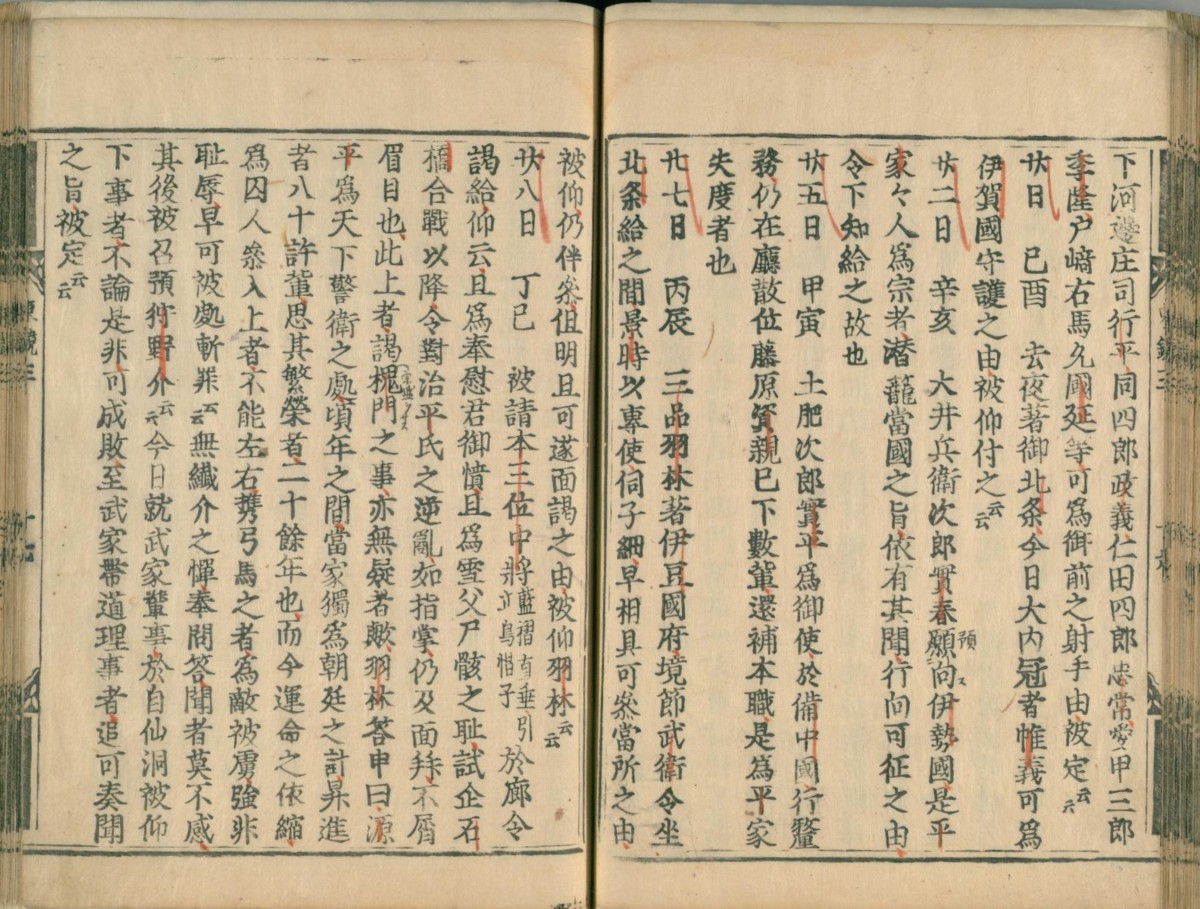 下河邊庄司行平同四郎政義仁田四郎忠常愛甲三郎
季隆戸﨑右馬允國延等可爲御前之射手由被定云云
廿日　己酉　去夜著御北条今日大内冠者惟義可爲
伊賀國守護之由被仰付之云云
廿二日　辛亥　大井兵衛次郎實春願向伊勢國是平
家々人爲宗者潜籠當國之旨依有其聞行向可征之由
令下知給之故也
廿五日　甲寅　土肥次郎實平爲御使於備中國行釐
務仍在廳散位藤原資親已下數輩還補本職是爲平家
失度者也
廿七日　丙辰　三品羽林著伊豆國府境節武衛令坐
北条給之間景時以專使伺子細早相具可叅當所之由
被仰仍伴叅但明旦可遂面謁之由被仰羽林云云
廿八日　丁巳　被請本三位中將藍褶直垂引立烏帽子於廊令
謁給仰云且爲奉慰君御憤且爲雪父尸骸之耻試企石
橋合戰以降令對治平氏之逆亂如指掌仍及面拜不屑
眉目也此上者謁槐門之事亦無疑者歟羽林答申曰源
平爲天下警衛之處頃年之間當家獨爲朝廷之計昇進
者八十許輩思其繁榮者二十餘年也而今運命之依縮
爲囚人叅入上者不能左右携弓馬之者爲敵被虜強非
耻辱早可被處斬罪云云無纖介之憚奉問答聞者莫不感
其後被召預狩野介云云今日就武家輩事於自仙洞被仰
下事者不論是非可成敗至武家帶道理事者追可奏聞
之旨被定云云